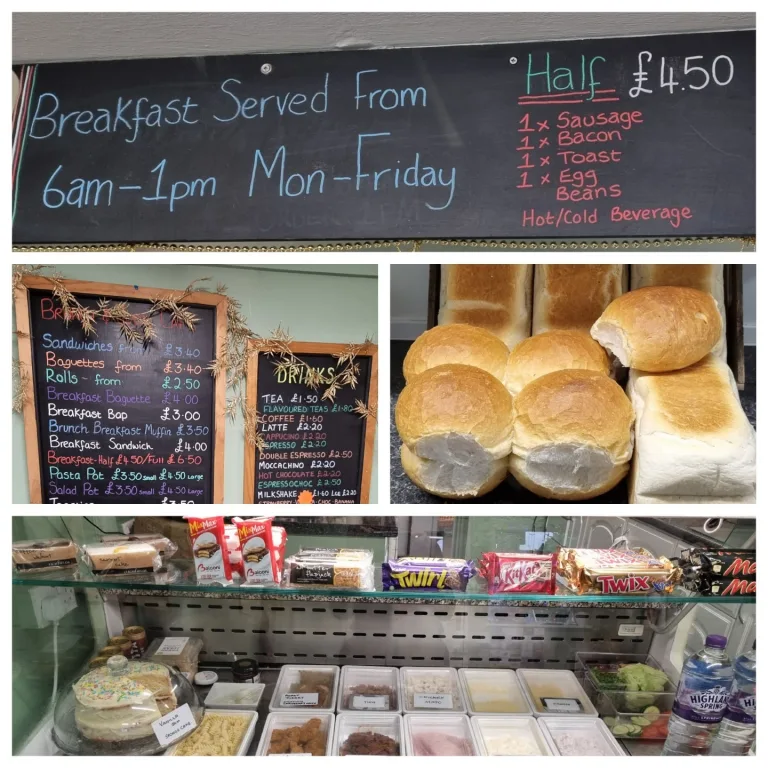 Breakfast Served From
6am-1pm Mon-Friday
Half £4.50
1x Sausage
1x Bacon
1x Toast
1x Egg
Beans
Hot/Cold Beverage
Sandwiches from £3.40
Baguettes from £3.40
Rolls - from £2.50
Breakfast Baguette £4.00
Breakfast Bap £3.00
Brunch Breakfast Muffin £3.50
Breakfast Sandwich £4.00
Breakfast-Half £4.50/Full £6.50
Pasta Pot £3.50 small £4.50 Large
Salad Pot £3.50 small £4.50 Large
DRINKS
TEA £1.50
FLAVOURED TEAS £1.80
COFFEE £1.80
LATTE £2.20
CAPPUCINO £2.20
ESPRESSO £2.20
DOUBLE ESPRESSO £2.50
MOCCACHINO £2.20
HOT CHOCOLATE £2.20
ESPRESSOCHOC £2.50
MILKSHAKE
CHOC BANANA
Twirl
KitKat
TWIX
Ma
Ma
VANILLA
HIGHLAND
SPRING